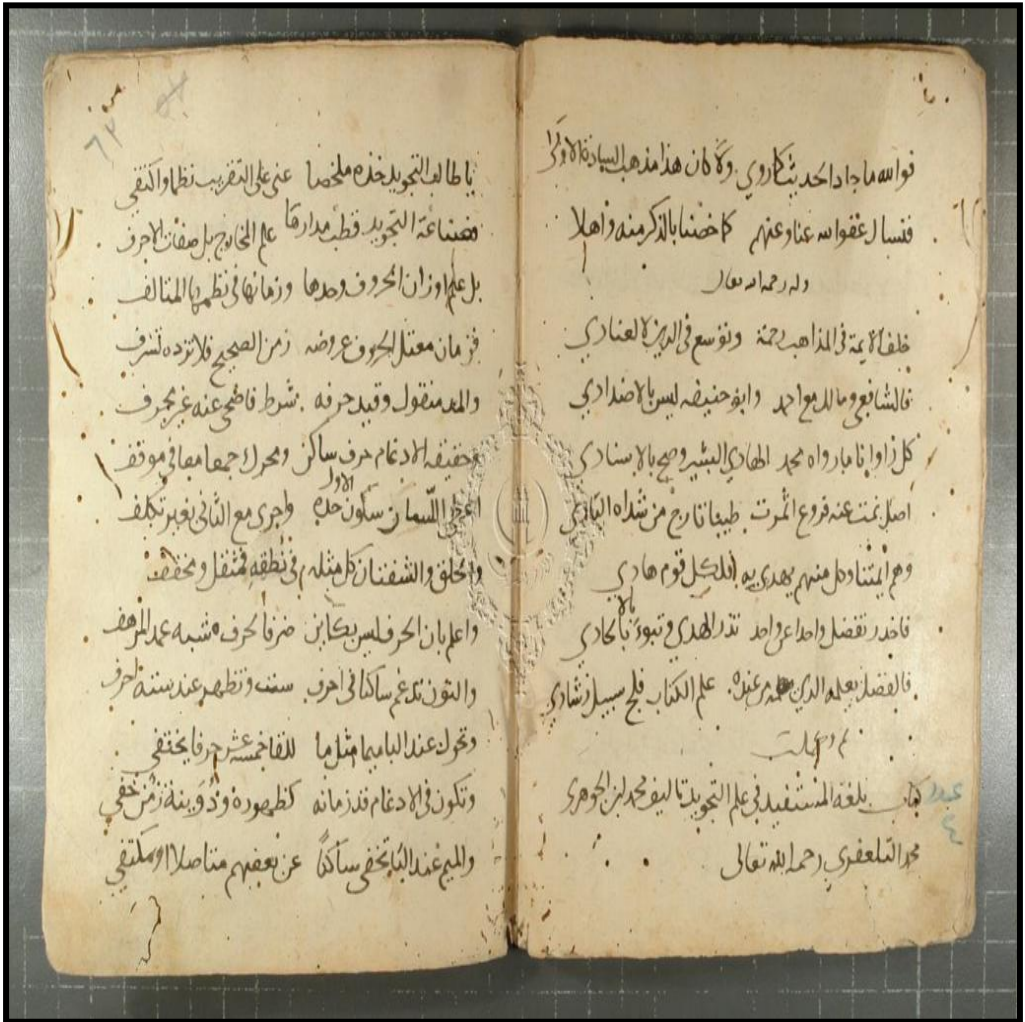 فوالله ما جاد الحديث كما روي ولا كان هذا مذهب السادة الاولى
فنسال عفو الله عنا وعنهم كما خصنا بالذكر منه واهلا
وله رحمه الله تعالى
خلف الايمة في المذاهب رحمة وتوسع في الدين لا لعنادي
فالشافعي ومالك مع احمد وابو حنيفه ليس بالاضدادي
كل راو انا ما رواه محمد الهادي البشير وصح بالاسنادي
اصل نمت عنه فروع اثمرت طيبا تارج من شذاه النادي
وهم ايمتنا وكل منهم يهدى به فلكل قوم هادي
فاحذر تفضل واحدا عن واحد تذر الهدى وتبوء بالالحادي
فالفضل يعلمه الذي من عنده علم الكتاب فلج سبيل رشادي
تم
كتاب بلغة المستفيد في علم التجويد تاليف محمد ابن الجوهري
محمد التلعفري رحمه الله تعالى
عدد
٤
٦٢
يا طالب التجويد خذه ملخصا عني على التقريب نظما واكتفي
فصناعة التجويد قطب مدارها علم المخارج بل صفات الاحرف
بل علم اوزان الحروف وحدها وزمانها في نظمها المتالف
فزمان معتل الحروف عروضه زمن الصحيح فلا تزده تشرف
والمد منقول وقيد حرفه شرط فاضحى عنه غير محرف
وحقيقه الادغام حرف ساكن ومحرك جمعا معا في موقف
اللسان سكون حده الاول واجرى مع الثاني بغير تكلف
والحلق والشفتان كل مثله في نطقه فمثقل ومخفف
واعلم بان الحرف ليس بكاين صرفا لحرف مشبه عمد المرهف
والنون تدغم ساكنا في احرف ست وتظهر عند ستة احرف
وتحول عند البا ميما مثل ما للفا خمسة عشر حرفا يختفي
وتكون في الادغام قدر زمانه كظهوره وذوينة زمن خفي
والميم عند البا تخفى ساكنا عن بعضهم متاصلا او مكتفي